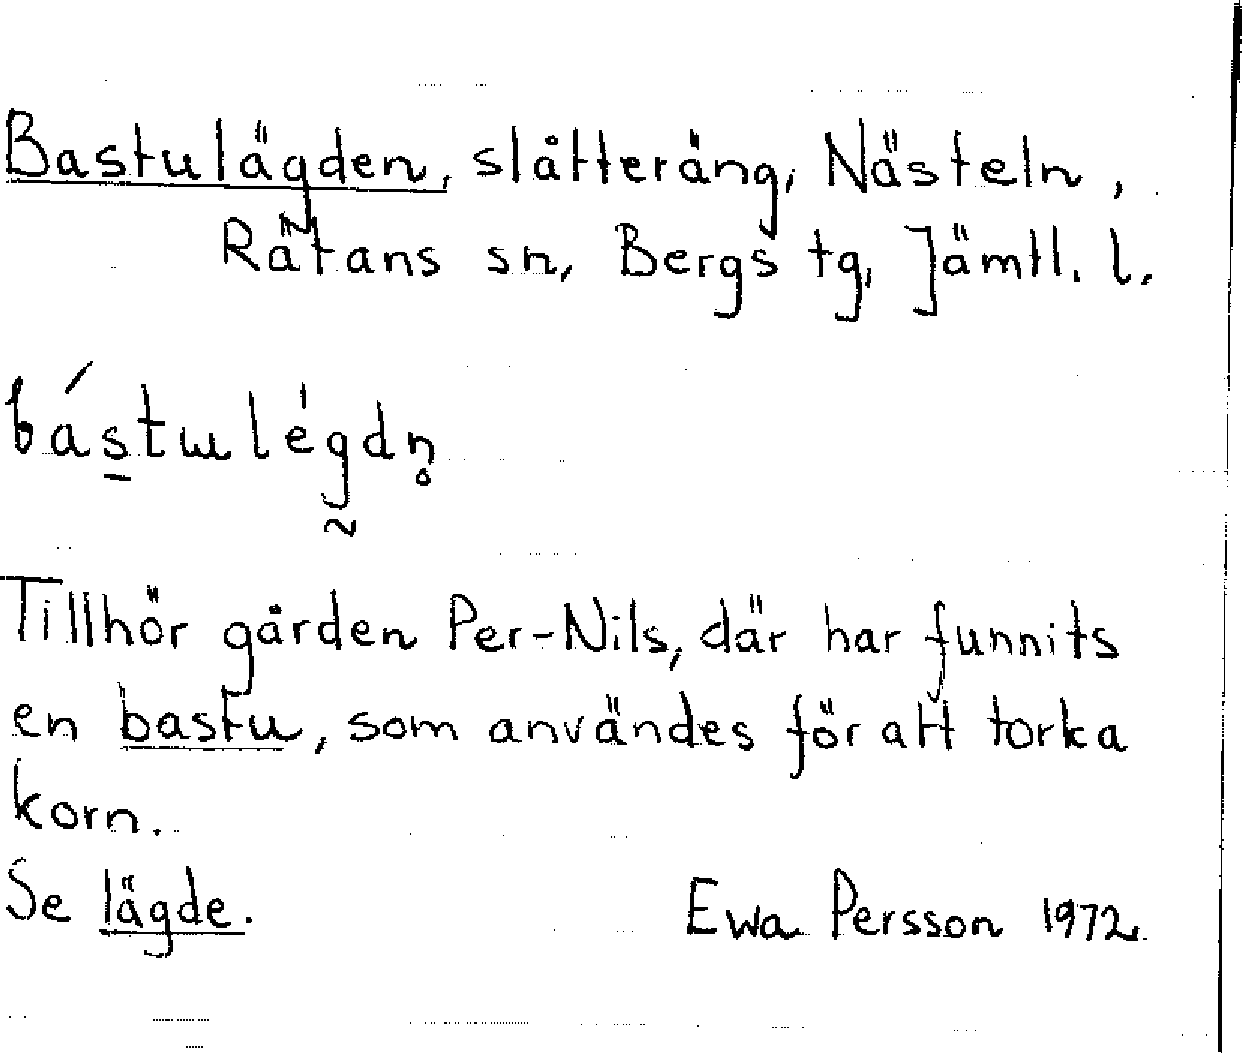 Bastulägden, slåtteräng, Nästeln,
Rätans sn, Bergs tg, Jämtl. l.
bástɯlégdn̥
Tillhör gården Per-Nils, där har funnits
en bastu, som användes för att torka
korn.
Se lägde.
Ewa Persson 1972.